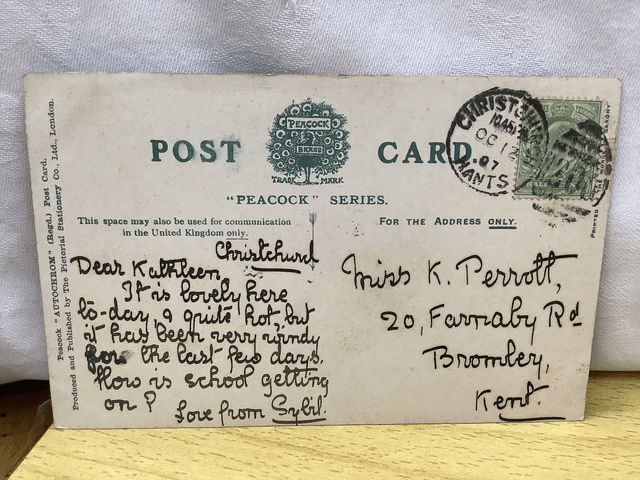 POST CARD
PEACOCK
BRAND
TRADE MARK
"PEACOCK" SERIES.
This space may also be used for communication
in the United Kingdom only.
FOR THE ADDRESS ONLY.
Christchurch
Dear Kathleen
It is lovely here
to-day, & quite hot, but
it has been very windy
for the last few days.
How is school getting
on?
Love from Sybil.
Miss K. Perrott,
20, Farnaby Rd
Bromley,
Kent.
CHRISTCHURCH
OC 12
07
HANTS
Peacock "AUTOCHROM" (Regd.) Post Card.
Produced and Published by The Pictorial Stationery Co., Ltd., London.
PRINTED